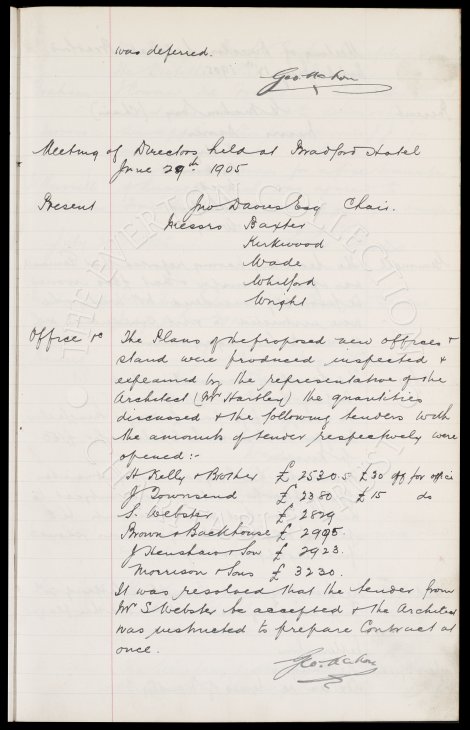 was deferred.
Meeting of Directors held at Bradford Hotel
June 29th 1905
Present Jno Davies Esq Chair.
Messrs Baxter
Kirkwood
Wade
Whitford
Wright
Office &c The Plans of the proposed new offices &
stand were produced inspected &
explained by the representative of the
Architect (Mr Hartley) the quantities
discussed & the following tenders with
the amounts of tender respectively were
opened:-
H Kelly & Brother £ 2530.5 £30 off for office
J Townsend £ 2380 £15 do
S. Webster £ 2829
Brown & Backhouse £ 2995.
J Henshaw & Son £ 2923.
Morrison & Sons £ 3230.
It was resolved that the tender from
Mr S Webster be accepted & the Architect
was instructed to prepare Contract at
once.
THE EVERTON COLLECTION